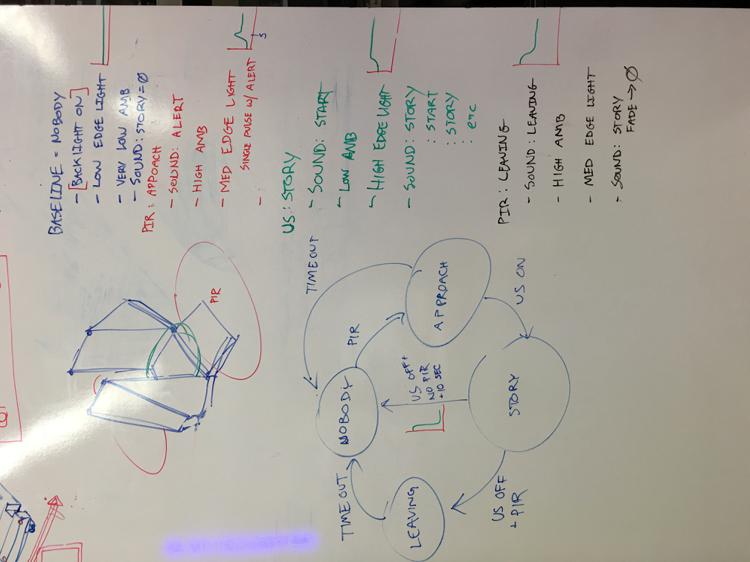 BASELINE = NOBODY
- [BACKLIGHT ON]
- LOW EDGE LIGHT
- VERY LOW AMB
- SOUND: STORY = Ø
PIR: APPROACH
- SOUND: ALERT
- HIGH AMB
- MED EDGE LIGHT
SINGLE PULSE W/ ALERT
-
US: STORY
- SOUND: START
- LOW AMB
- HIGH EDGE LIGHT
- SOUND: STORY
: START
: STORY
: etc
PIR: LEAVING
- SOUND: LEAVING
- HIGH AMB
- MED EDGE LIGHT
- SOUND: STORY
FADE → Ø
PIR
TIMEOUT
PIR
APPROACH
US ON
NOBODY
US OFF +
NO PIR
+10 SEC
STORY
TIMEOUT
LEAVING
US OFF
+ PIR